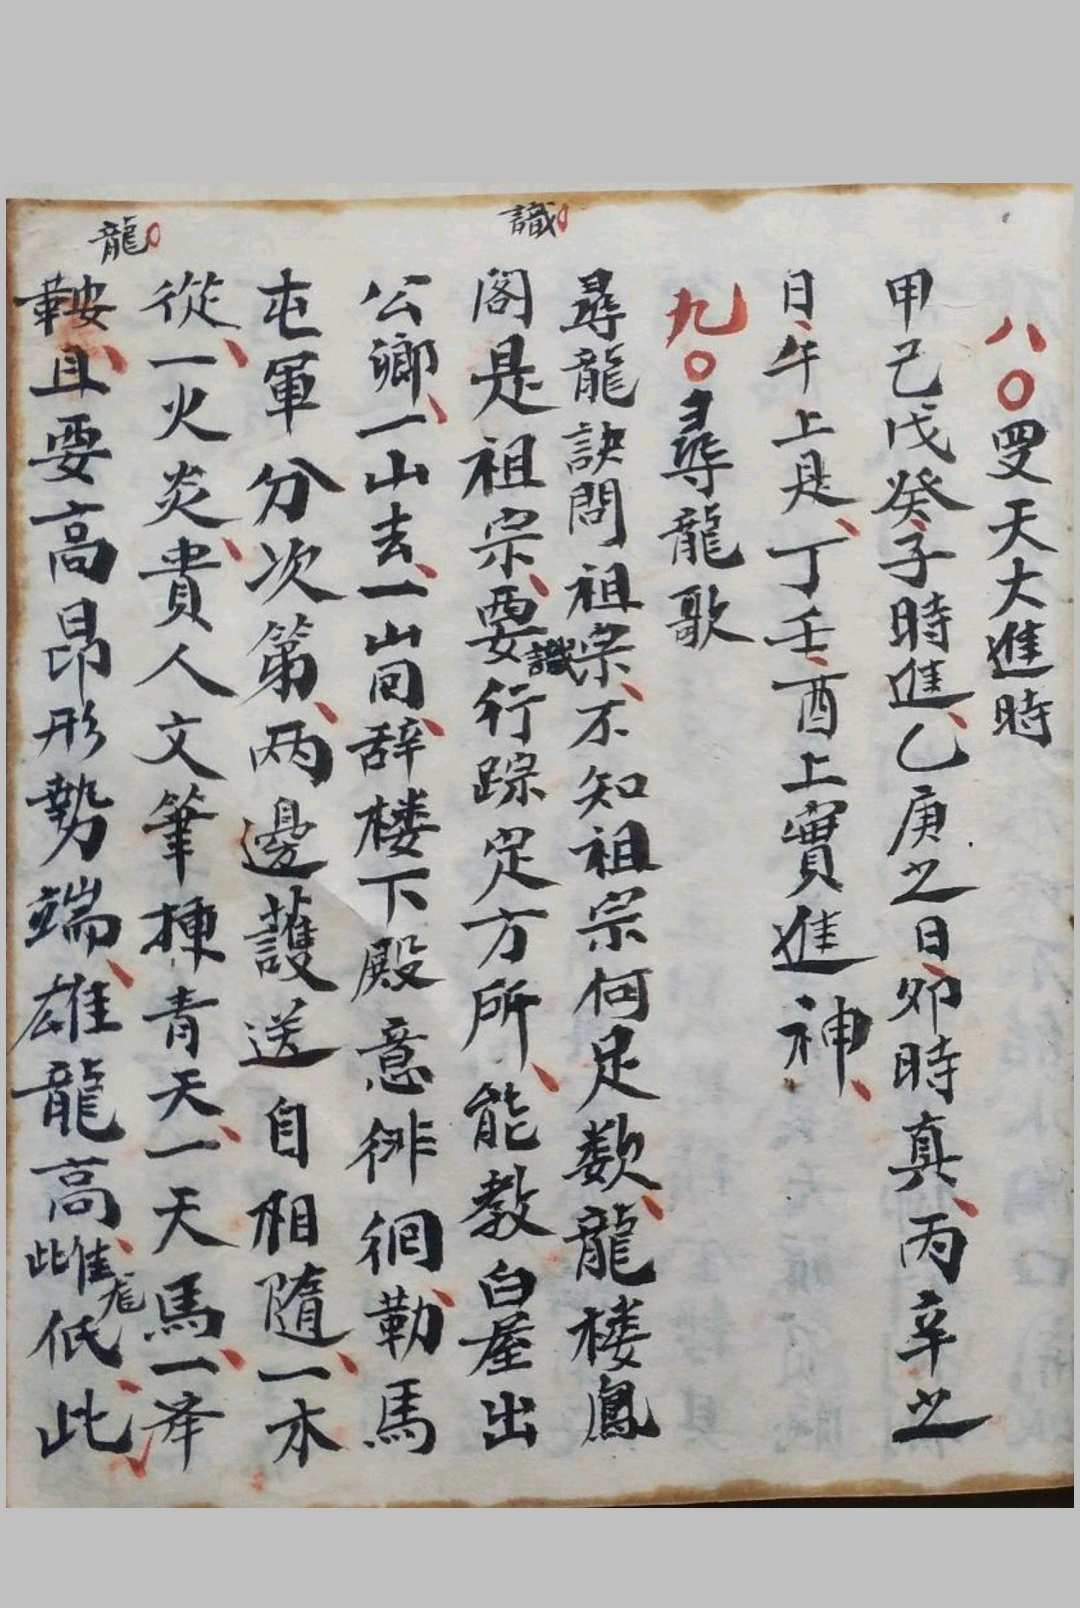 八〇罡天大進時
甲己戊癸子時進乙庚之日卯時真丙辛之
日午上是丁壬酉上實進神
九〇尋龍歌
尋龍訣問祖宗不知祖宗何足数龍楼鳳
閣是祖宗要識行踪定方所能教白屋出
公卿一山去一山囘辞楼下殿意徘徊勒馬
屯軍分次第两邊護送自相隨一木
從一火炎貴人文筆揷青天一天馬一泽
鞍且要高昂形勢端雄龍高雌龍低此
識
龍